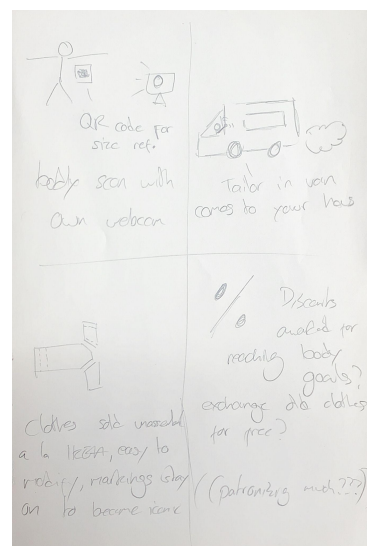 QR code for
size ref.
body scan with
own webcam
Tailor in van
comes to your hous
Clothes sold unassembled
a la IKEA, easy to
modify, markings stay
on to become iconic
%
Discounts
awarded for
reaching body
goals?
exchange old clothes
for free?
(patronising much???)